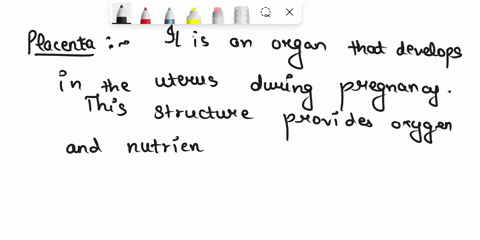 Placenta :- It is an organ that develops
in the uterus during pregnancy.
This structure provides oxygen
and nutrien